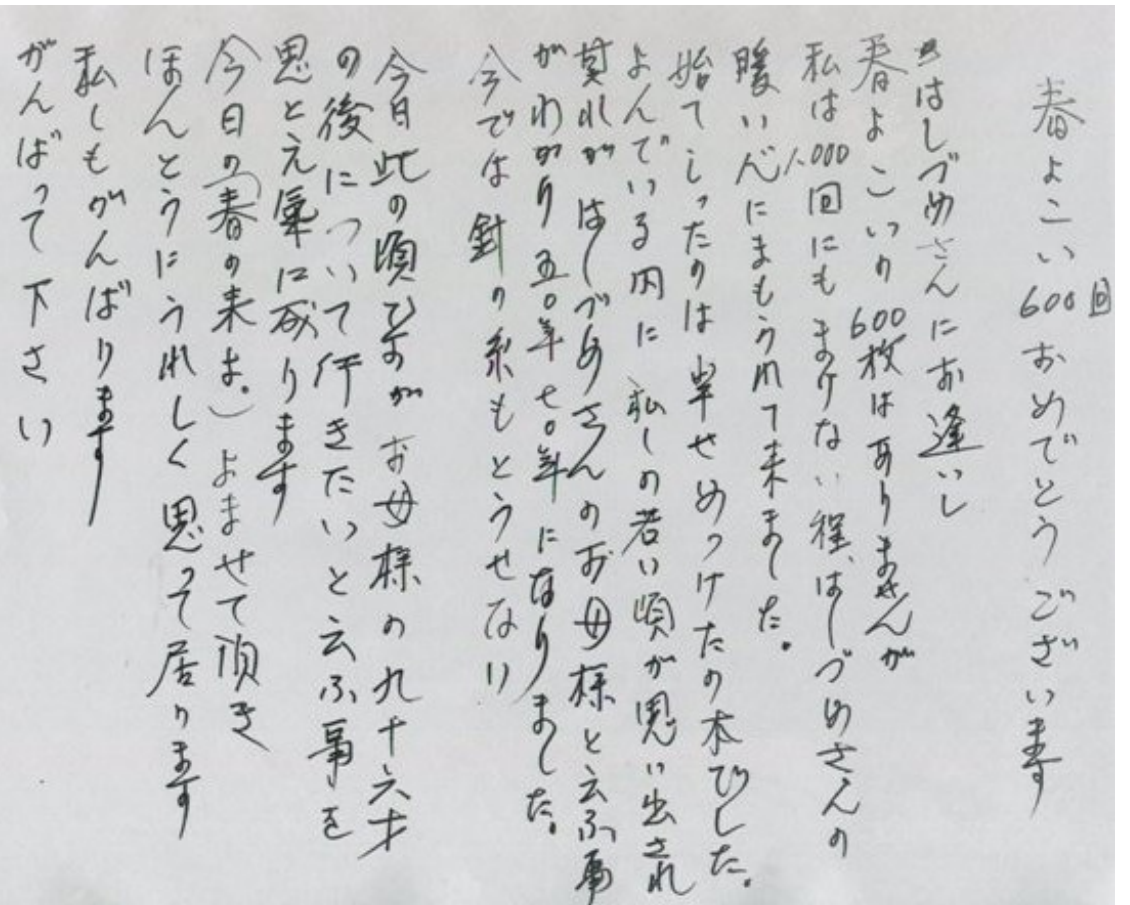 春よこい600回おめでとうございます
はしづめさんにお逢いし
春よこいの600枚はありませんが
私は1.000回にもまけない程、はしづめさんの
暖い心にまもられて来ました。
始てしったのは幸せめっけたの本でした。
よんでいる内に私しの若い頃が思い出され
其れがはしづめさんのお母様と云ふ事
がわかり五〇年七〇年になりました。
今では針の糸もとうせない
今日此の頃ですがお母様の九十六才
の後について行きたいと云ふ事を
思とえ氣に成ります
今日の(春の来は。)よませて頂き
ほんとうにうれしく思って居ります
私しもがんばります
がんばって下さい